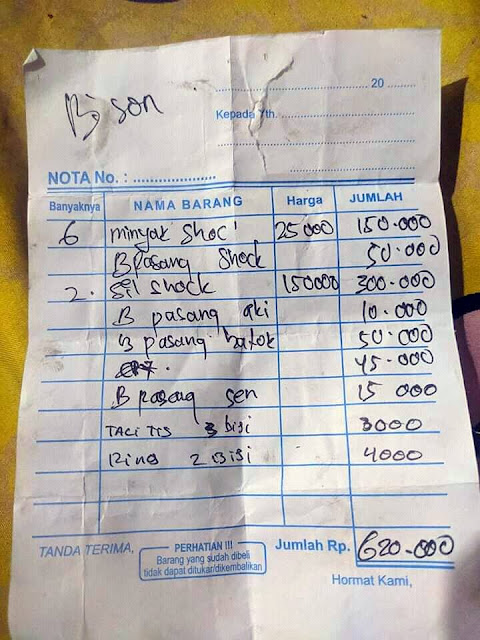 Bison
20
Kepada Yth.
NOTA No. :
Banyaknya NAMA BARANG Harga JUMLAH
6 minyak shoc 25000 150.000
B pasang shock 50.000
2. sil shock 150000 300.000
B pasang aki 10.000
B pasang batok 50.000
45.000
B pasang sen 15 000
TALI TIS 3 BISI 3000
RING 2 BISI 4000
TANDA TERIMA,
PERHATIAN !!!
Barang yang sudah dibeli
tidak dapat ditukar/dikembalikan
Jumlah Rp. 620.000
Hormat Kami,